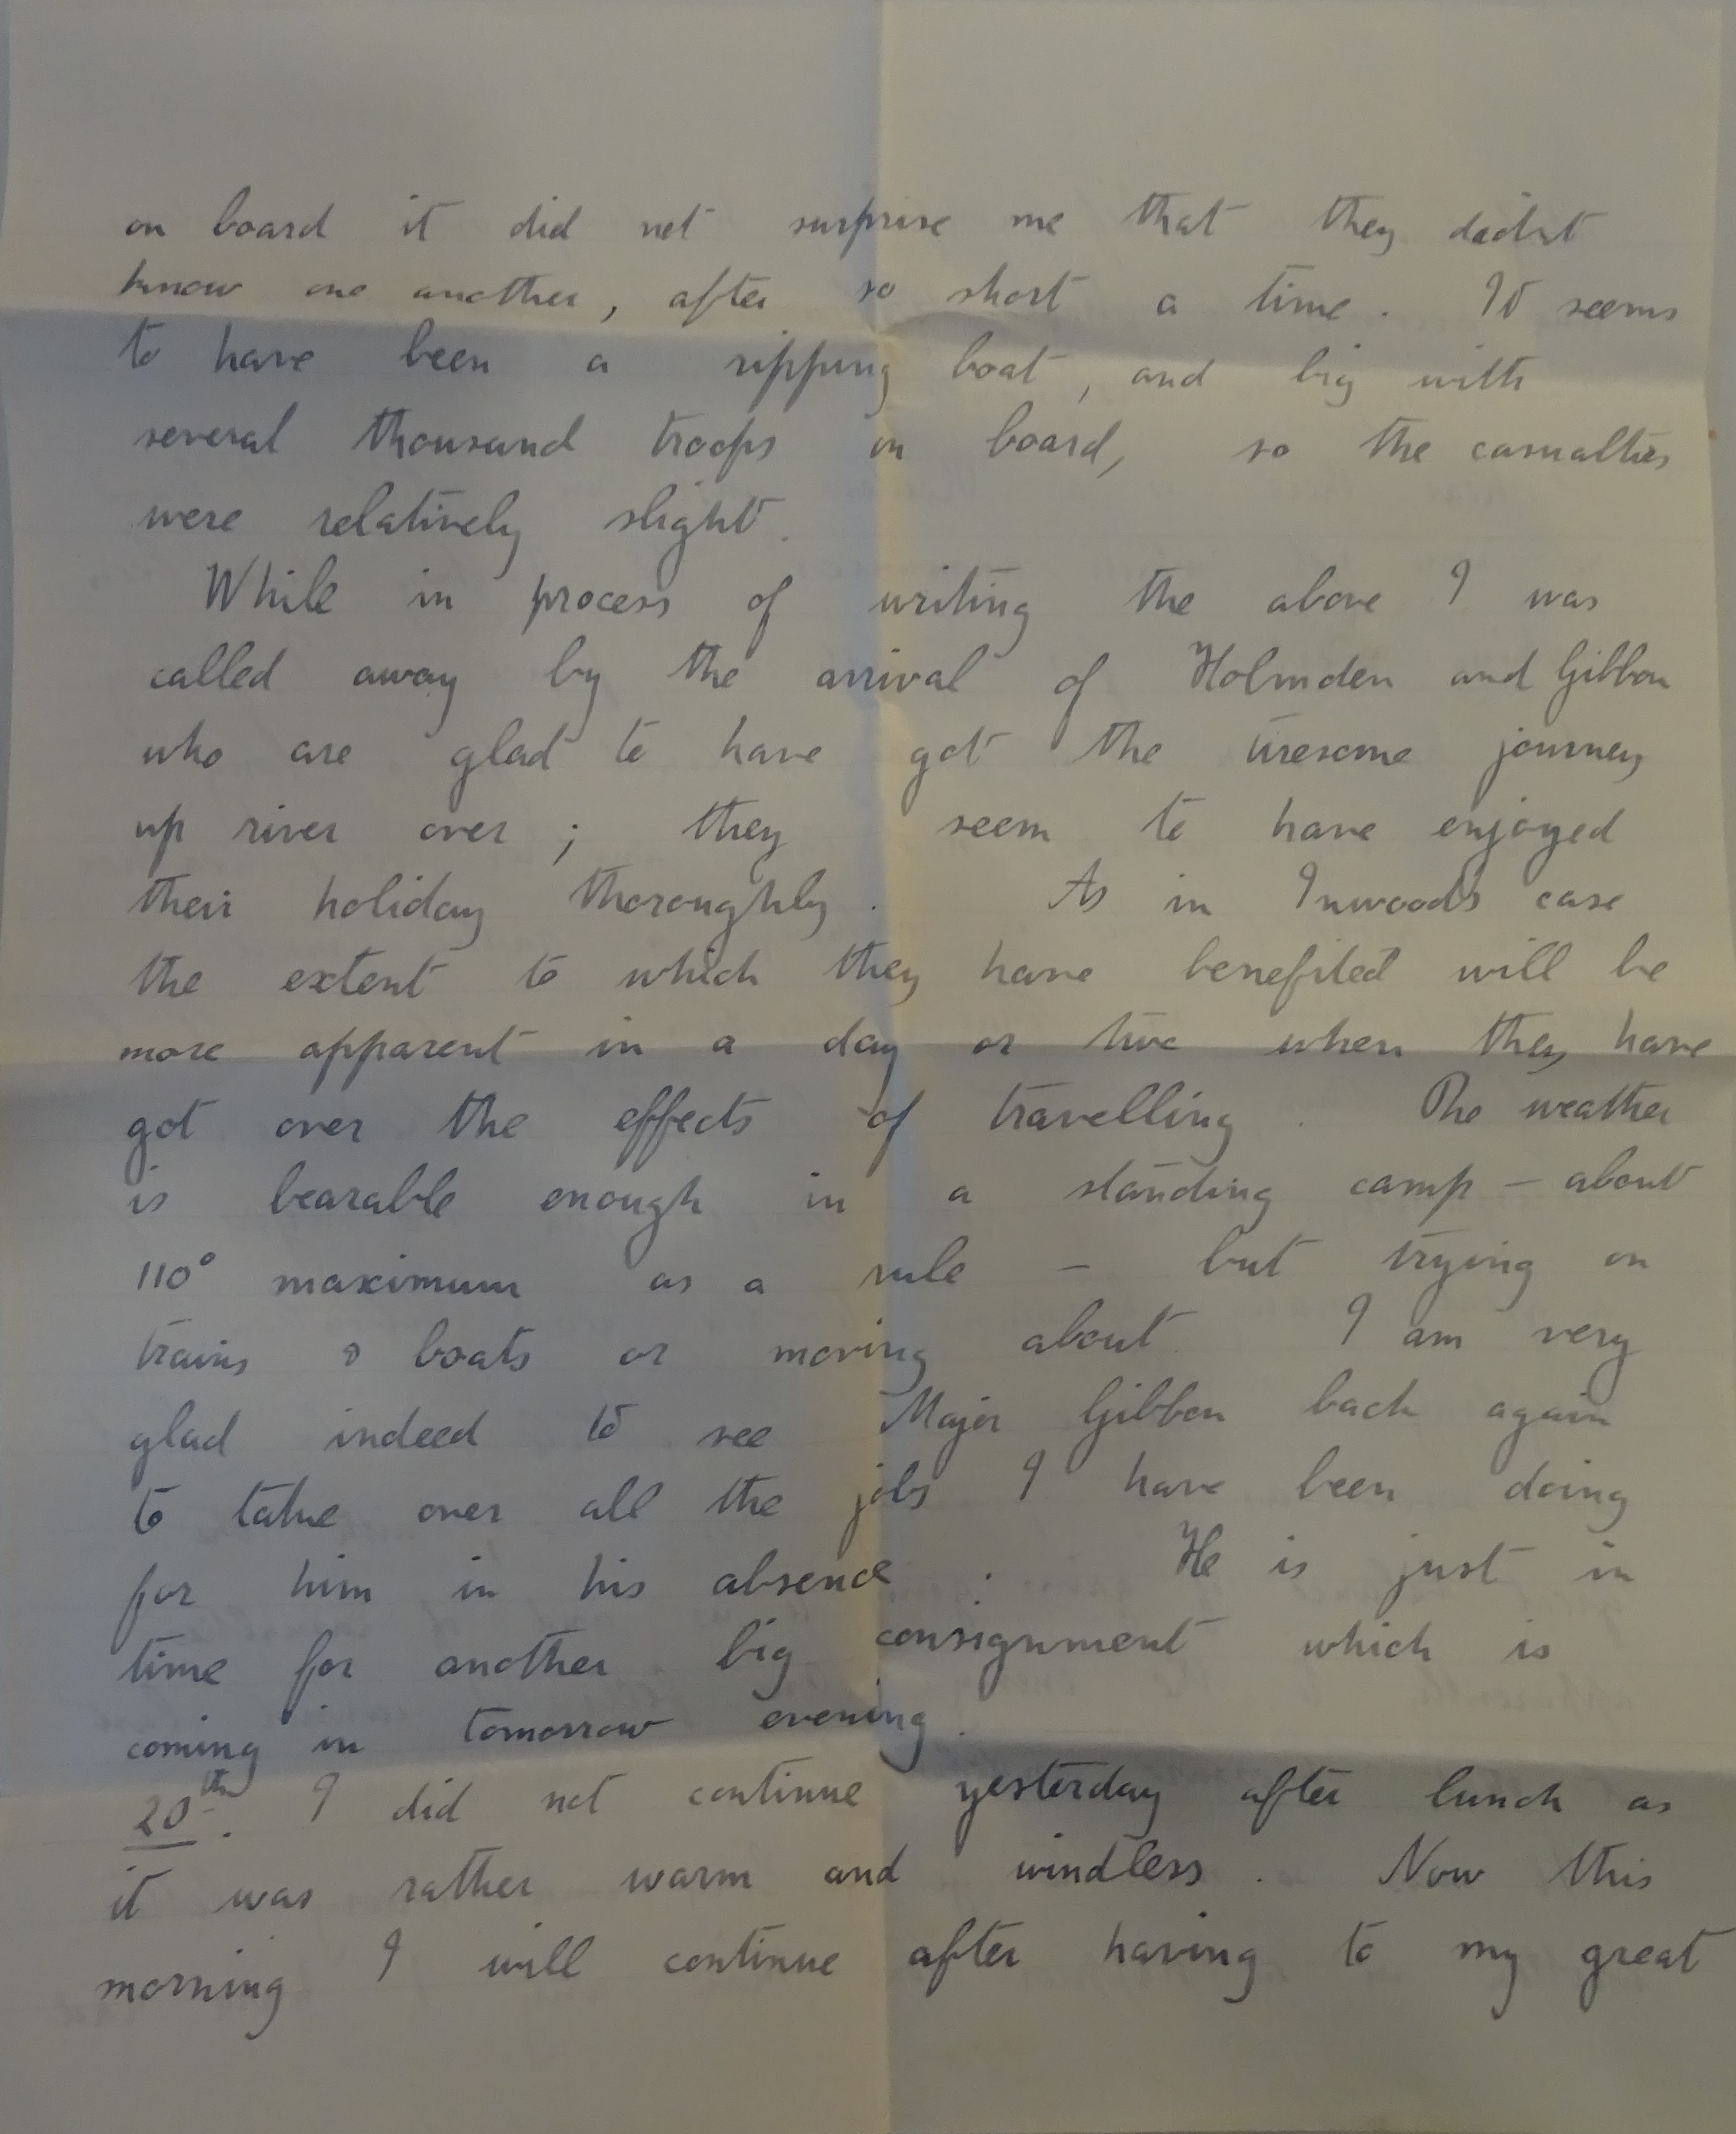 on board it did not surprise me that they didnt
know one another, after so short a time. It seems
to have been a ripping boat, and big with
several thousand troops on board, so the casualties
were relatively slight.
While in process of writing the above I was
called away by the arrival of Holmden and Gibbon
who are glad to have got the tiresome journey
up river over; they seem to have enjoyed
their holiday thoroughly. As in Inwoods case
the extent to which they have benefited will be
more apparent in a day or two when they have
got over the effects of travelling. The weather
is bearable enough in a standing camp – about
110° maximum as a rule – but trying on
trains & boats or moving about. I am very
glad indeed to see Major Gibbon back again
to take over all the jobs I have been doing
for him in his absence. He is just in
time for another big consignment which is
coming in tomorrow evening.
20th. I did not continue yesterday after lunch as
it was rather warm and windless. Now this
morning I will continue after having to my great